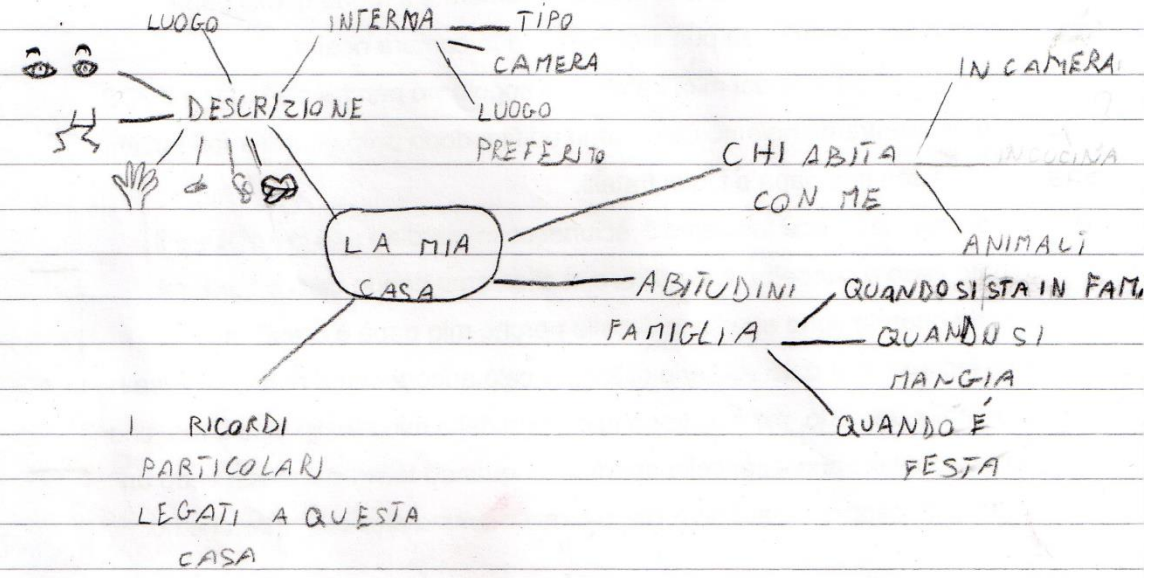 LUOGO
INTERNA
TIPO
CAMERA
LUOGO
PREFERITO
DESCRIZIONE
IN CAMERA
CHI ABITA
CON ME
IN CUCINA
ANIMALI
LA MIA
CASA
ABITUDINI
FAMIGLIA
QUANDO SI STA IN FAM.
QUANDO SI
MANGIA
QUANDO É
FESTA
I RICORDI
PARTICOLARI
LEGATI A QUESTA
CASA